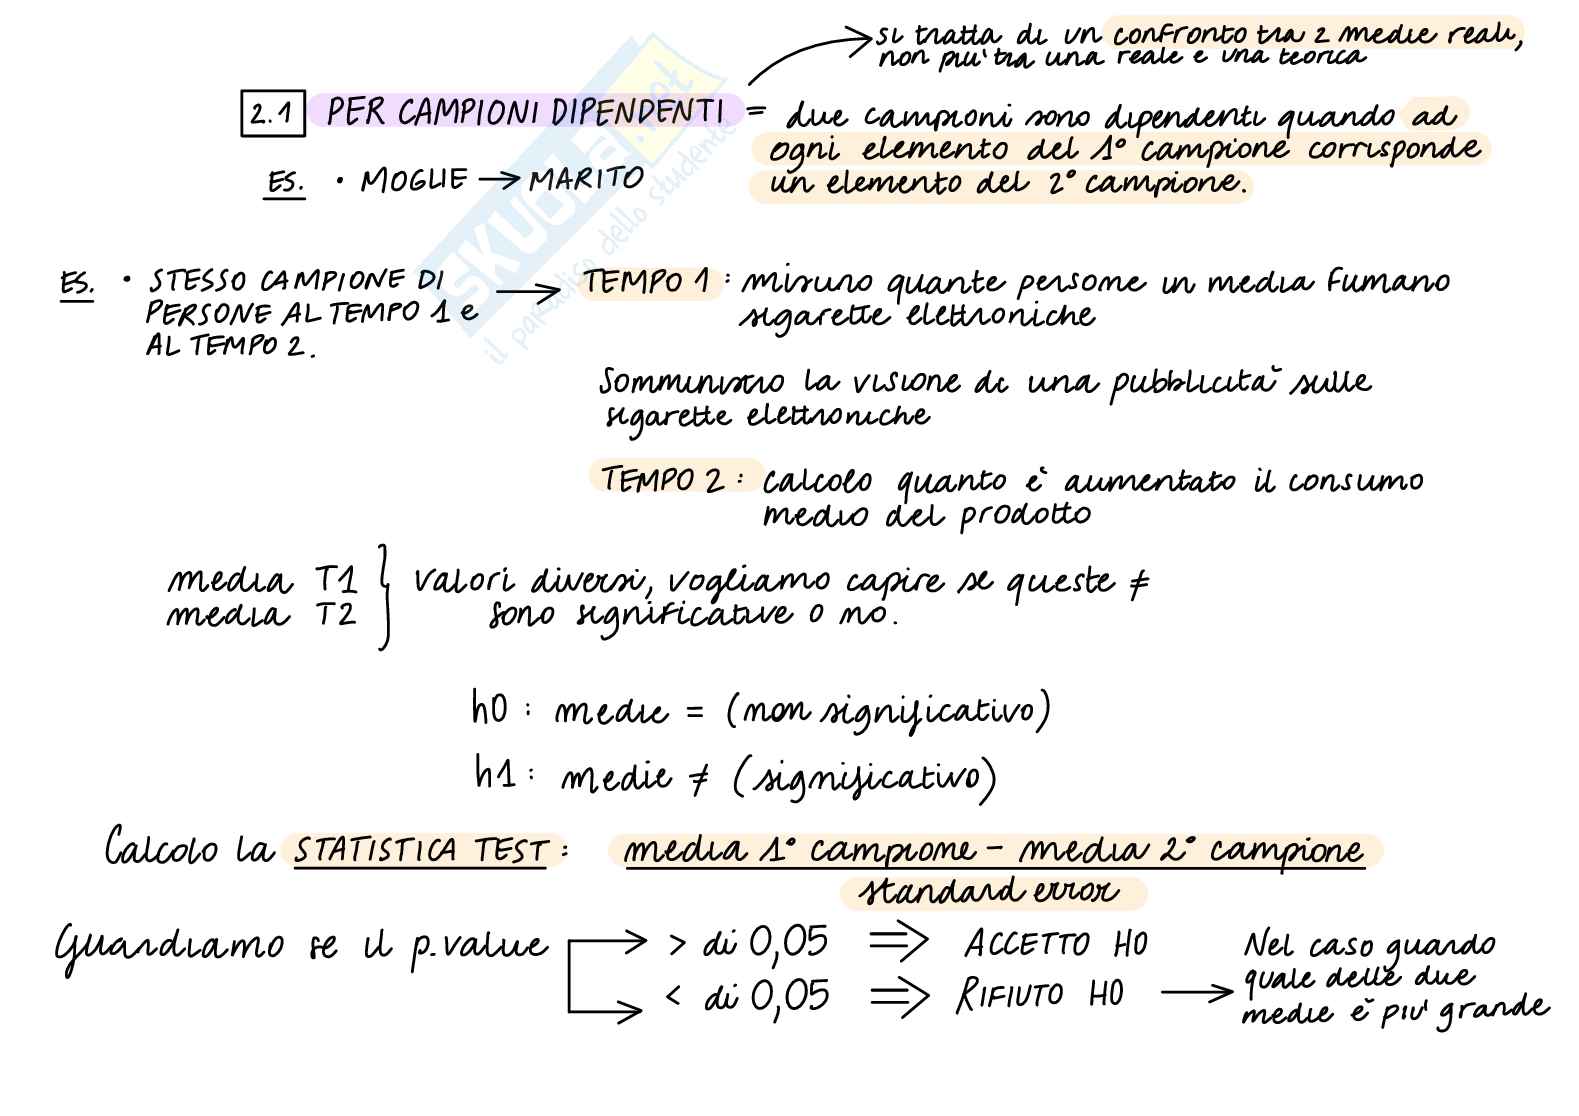 si tratta di un confronto tra 2 medie reali,
non piu' tra una reale e una teorica
2.1 PER CAMPIONI DIPENDENTI = due campioni sono dipendenti quando ad
ogni elemento del 1° campione corrisponde
un elemento del 2° campione.
ES. • MOGLIE → MARITO
ES. • STESSO CAMPIONE DI
PERSONE AL TEMPO 1 e
AL TEMPO 2.
→ TEMPO 1 : misuro quante persone in media fumano
sigarette elettroniche
Somministro la visione di una pubblicità sulle
sigarette elettroniche
TEMPO 2 : calcolo quanto è aumentato il consumo
medio del prodotto
media T1
media T2
} valori diversi, vogliamo capire se queste ≠
sono significative o no.
h0 : medie = (non significativo)
h1 : medie ≠ (significativo)
Calcolo la STATISTICA TEST : media 1° campione - media 2° campione
standard error
Guardiamo se il p.value → > di 0,05 ⇒ ACCETTO H0
→ < di 0,05 ⇒ RIFIUTO H0 →
Nel caso guardo
quale delle due
medie è piu' grande
SKUOLA.net
il paradiso dello studente